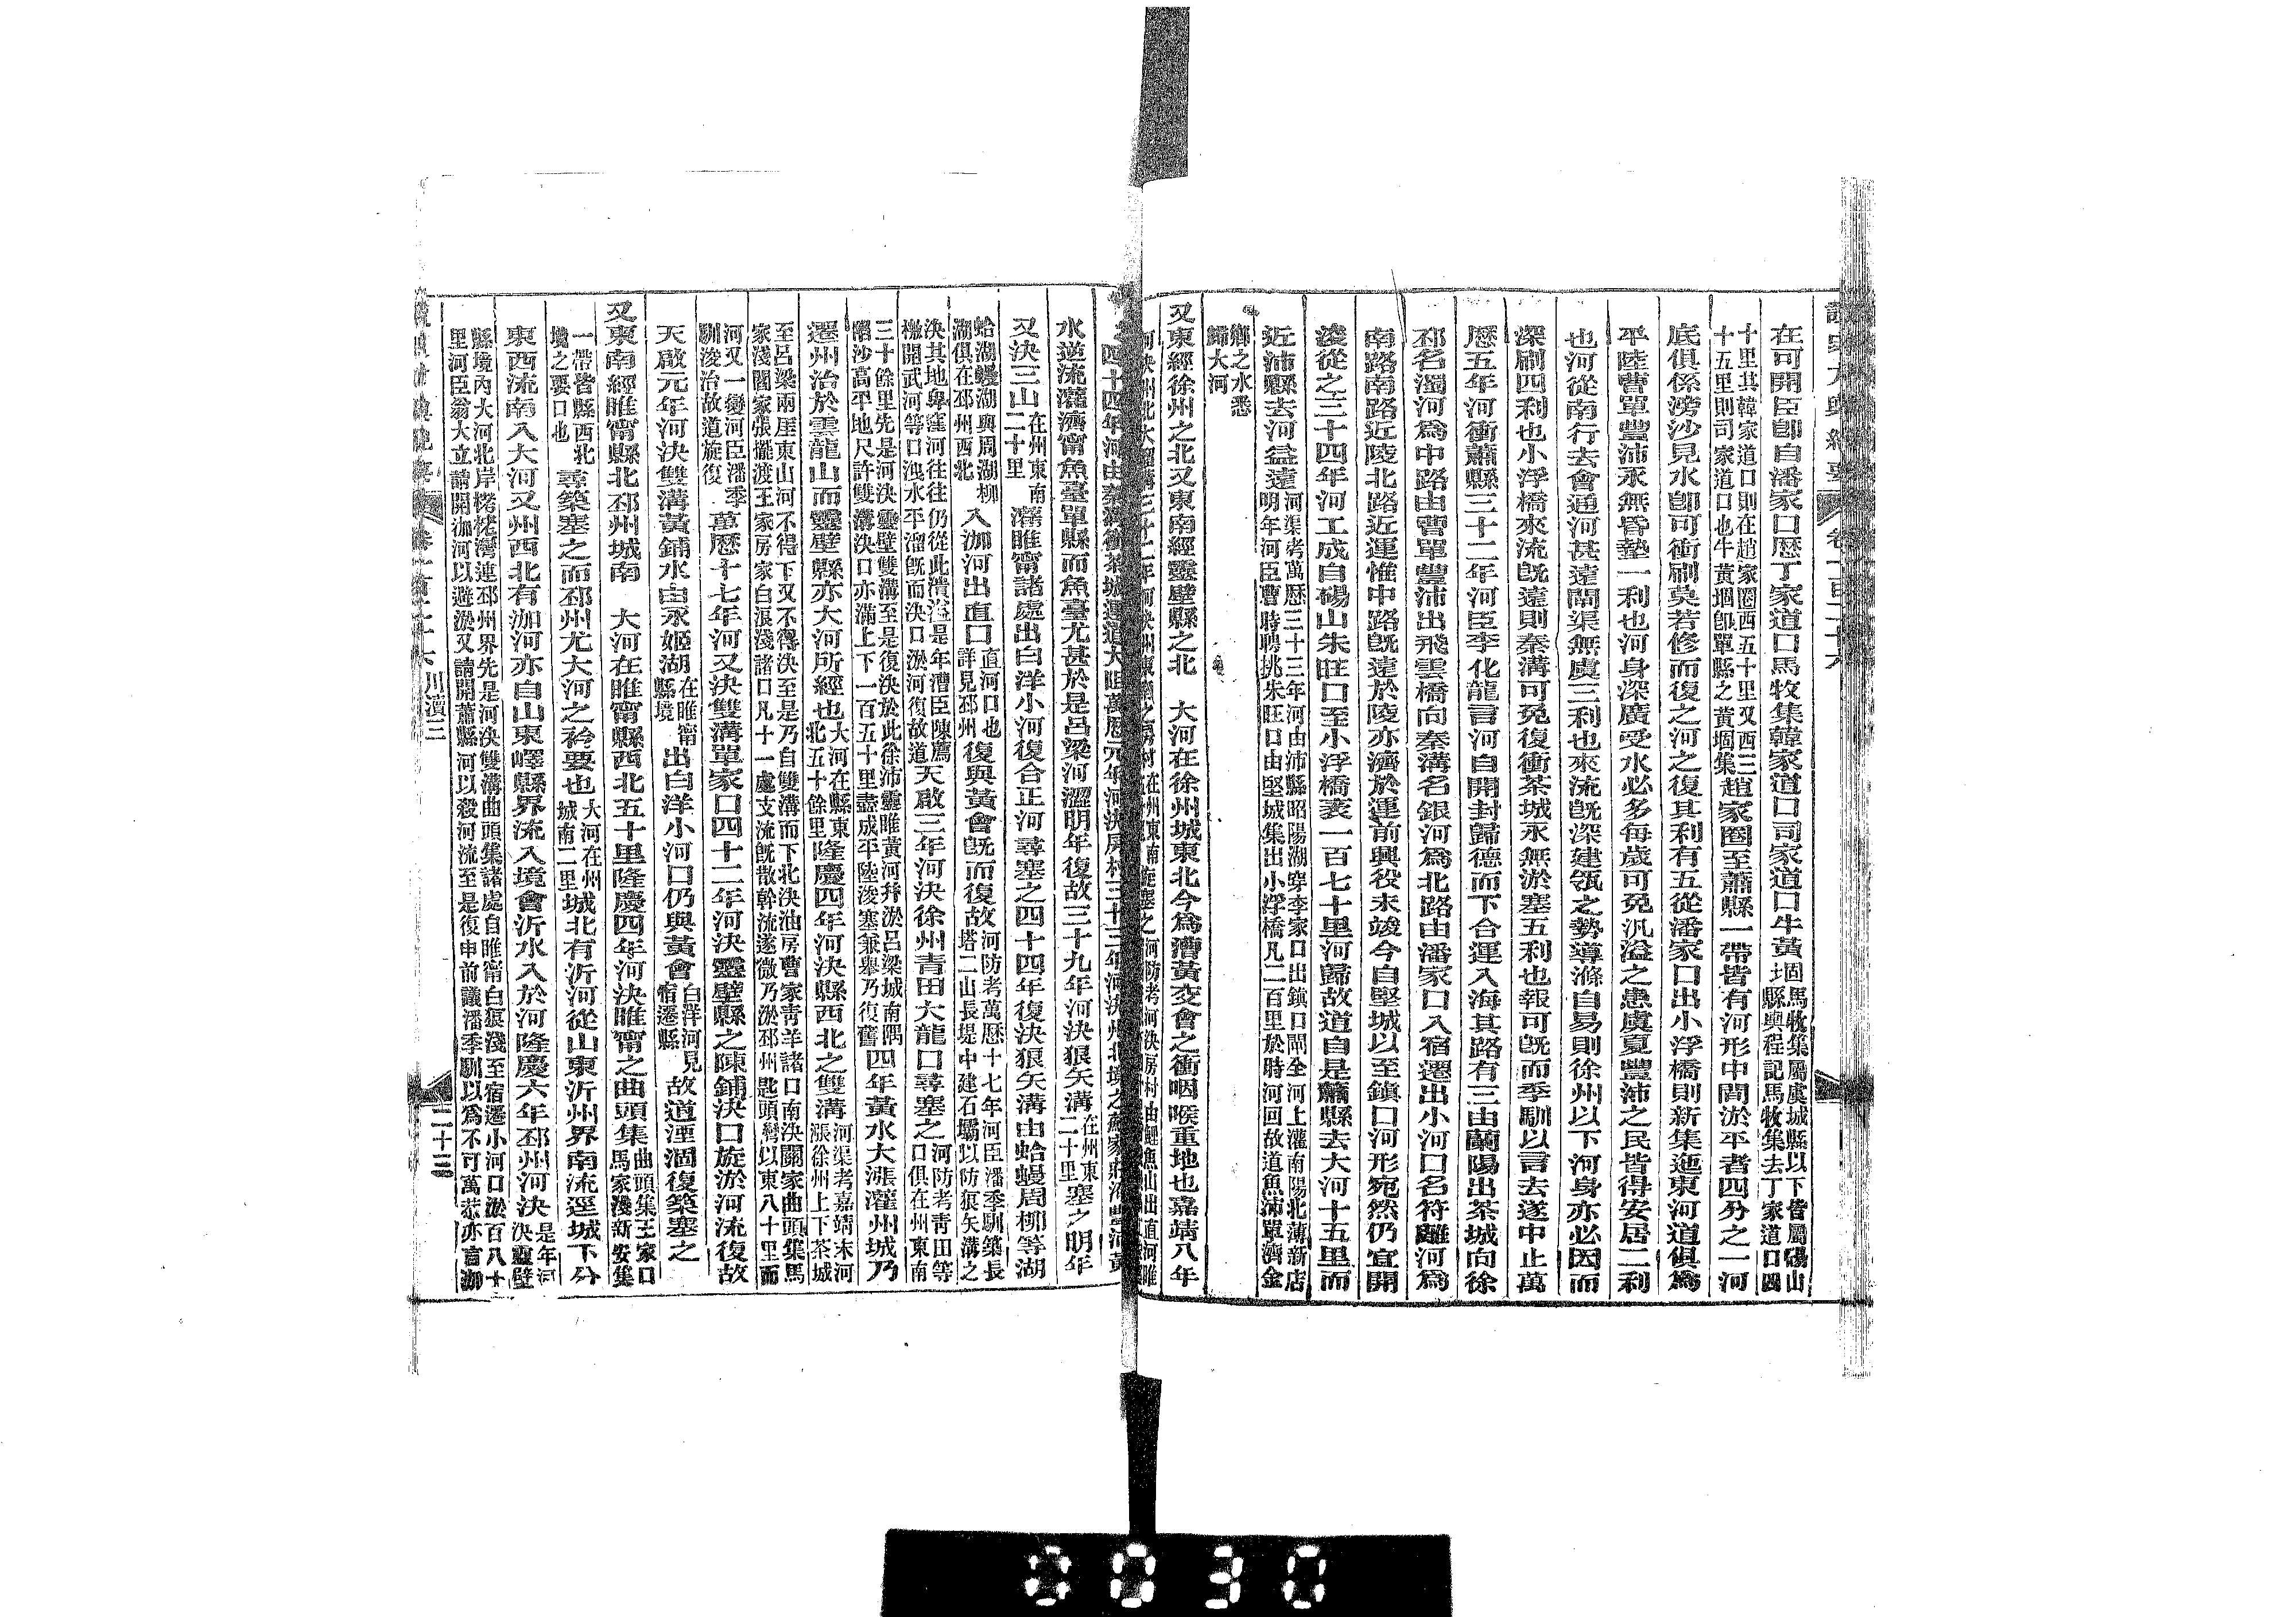 讀史方輿紀要 卷一百二十六
在可開臣卽自潘家口歷丁家道口馬牧集韓家道口司家道口牛黃堌馬牧集屬虞城縣以下皆屬碭山縣輿程記馬牧集去丁家道口四
十里其韓家道口則在趙家圈西五十里又西二十五里則司家道口也牛黃堌卽單縣之黃堌集趙家圈至蕭縣一帶皆有河形中間淤平者四分之一河
底俱係滂沙見水卽可衝刷莫若修而復之河之復其利有五從潘家口出小浮橋則新集迤東河道俱爲
平陸曹單豐沛永無昏墊一利也河身深廣受水必多每歲可免汎溢之患虞夏豐沛之民皆得安居二利
也河從南行去會通河甚遠閘渠無虞三利也來流旣深建瓴之勢導滌自易則徐州以下河身亦必因而
深刷四利也小浮橋來流旣遠則秦溝可免復衝茶城永無淤塞五利也報可旣而季馴以言去遂中止萬
歷五年河衝蕭縣三十二年河臣李化龍言河自開封歸德而下合運入海其路有三由蘭陽出茶城向徐
邳名濁河爲中路由曹單豐沛出飛雲橋向秦溝名銀河爲北路由潘家口入宿遷出小河口名符離河爲
南路南路近陵北路近運惟中路旣遠於陵亦濟於運前興役未竣今自堅城以至鎮口河形宛然仍宜開
浚從之三十四年河工成自碭山朱旺口至小浮橋袤一百七十里河歸故道自是蕭縣去大河十五里而
近沛縣去河益遠河渠考萬歷三十三年河由沛縣昭陽湖穿李家口出鎮口閘全河上灌南陽北薄新店明年河臣曹時聘挑朱旺口由堅城集出小浮橋凡二百里於時河回故道魚沛單濟金
鄉之水悉歸大河
又東經徐州之北又東南經靈壁縣之北 大河在徐州城東北今爲漕黃交會之衝咽喉重地也嘉靖八年
四十四年河由秦溝衝茶城運道大阻萬歷元年河決房村三十二年河決州北境之蘇家莊淹豐沛黃
水逆流灌濟甯魚臺單縣而魚臺尤甚於是呂梁河澀明年復故三十九年河決狼矢溝在州東二十里塞之明年
又決三山在州東南二十里灌睢甯諸處出白洋小河復合正河尋塞之四十四年復決狼矢溝由蛤蟃周柳等湖
蛤湖蟃湖與周湖柳湖俱在邳州西北入泇河出直口直河口也詳見邳州復與黃會旣而復故河防考萬歷十七年河臣潘季馴築長塔二山長堤中建石壩以防狼矢溝之
決其地卑窪河往往仍從此潰溢是年漕臣陳薦檄開武河等口洩水平溜旣而決口淤河復故道天啟三年河決徐州青田大龍口尋塞之河防考青田等口俱在州東南
三十餘里先是河決靈壁雙溝至是復決於此徐沛靈睢黃河幷淤呂梁城南隅溜沙高平地尺許雙溝決口亦滿上下一百五十里盡成平陸浚塞兼舉乃復舊四年黃水大漲灌州城乃
遷州治於雲龍山而靈壁縣亦大河所經也大河在縣東北五十餘里隆慶四年河決縣西北之雙溝河渠考嘉靖末河漲徐州上下茶城
至呂梁兩崖東山河不得下又不得決至是乃自雙溝而下北決油房曹家青羊諸口南決關家曲頭集馬家淺閻家張擺渡王家房家白浪淺諸口凡十一處支流旣散幹流遂微乃淤邳州匙頭灣以東八十里而
河又一變河臣潘季馴浚治故道旋復萬歷十七年河又決雙溝單家口四十二年河決靈壁縣之陳鋪決口旋淤河流復故
天啟元年河決雙溝黃鋪水由永姬湖在睢甯縣境出白洋小河口仍與黃會白洋河見宿遷縣故道湮涸復築塞之
又東南經睢甯縣北邳州城南 大河在睢甯縣西北五十里隆慶四年河決睢甯之曲頭集曲頭集王家口馬家淺新安集
一帶皆縣西北境之要口也尋築塞之而邳州尤大河之衿要也大河在州城南二里城北有沂河從山東沂州界南流逕城下分
東西流南入大河又州西北有泇河亦自山東嶧縣界流入境會沂水入於河隆慶六年邳州河決是年河決靈壁
縣境內大河北岸栳栳灣連邳州界先是河決雙溝曲頭集諸處自睢甯白狼淺至宿遷小河口淤百八十里河臣翁大立請開泇河以避淤又請開蕭縣河以殺河流至是復申前議潘季馴以爲不可萬恭亦言泇
川瀆三 二十三
0030